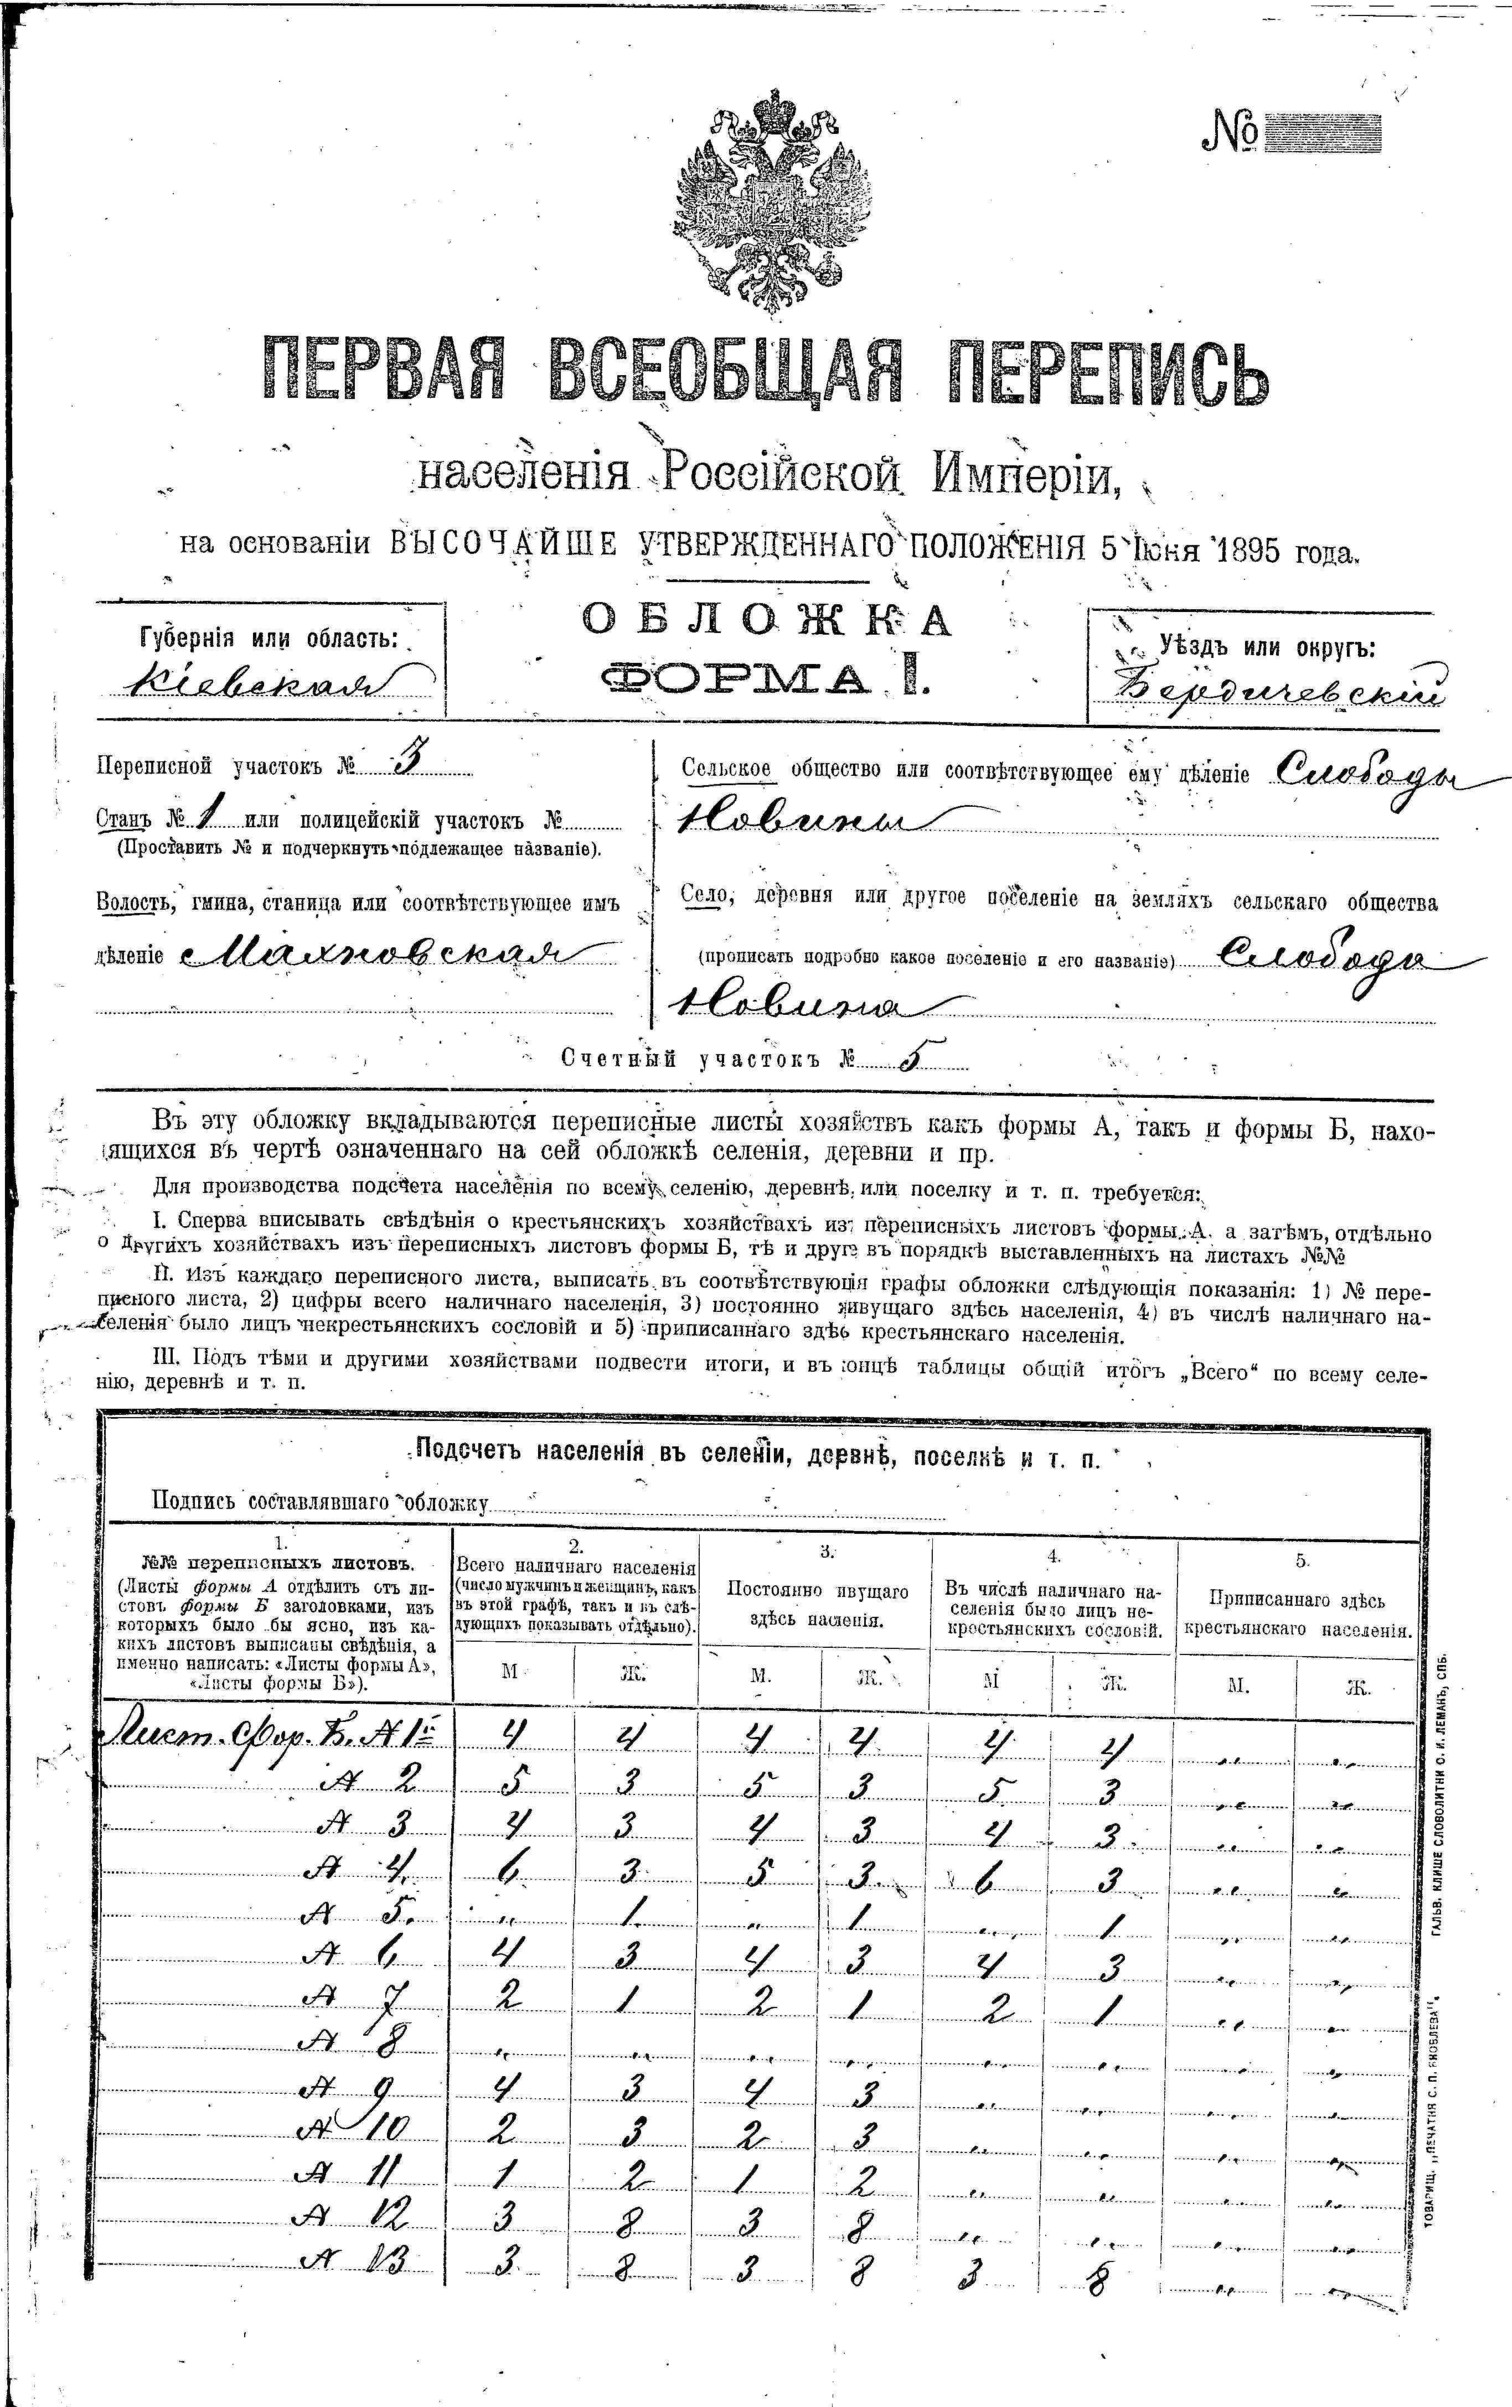 №
ПЕРВАЯ ВСЕОБЩАЯ ПЕРЕПИСЬ
населенія Россійской Имперіи,
на основаніи ВЫСОЧАЙШЕ УТВЕРЖДЕННАГО ПОЛОЖЕНІЯ 5 Іюня 1895 года.
ОБЛОЖКА
ФОРМА I.
Губернія или область:
Кіевская
Уѣздъ или округъ:
Бердичевскій
Переписной участокъ № 3
Станъ № 1 или полицейскій участокъ №
(Проставить № и подчеркнуть подлежащее названіе).
Волость, гмина, станица или соотвѣтствующее имъ
дѣленіе Махновская
Сельское общество или соотвѣтствующее ему дѣленіе Слободы
Новины
Село, деревня или другое поселеніе на земляхъ сельскаго общества
(прописать подробно какое поселеніе и его названіе) Слобода
Новина
Счетный участокъ № 5
Въ эту обложку вкладываются переписные листы хозяйствъ какъ формы А, такъ и формы Б, нахо-
ящихся въ чертѣ означеннаго на сей обложкѣ селенія, деревни и пр.
Для производства подсчета населенія по всему селенію, деревнѣ, или поселку и т. п. требуется:
I. Сперва вписывать свѣдѣнія о крестьянскихъ хозяйствахъ изъ переписныхъ листовъ формы А. а затѣмъ, отдѣльно
о другихъ хозяйствахъ изъ переписныхъ листовъ формы Б, тѣ и друг въ порядкѣ выставленныхъ на листахъ №№
II. Изъ каждаго переписного листа, выписать въ соотвѣтствующія графы обложки слѣдующія показанія: 1) № пере-
писного листа, 2) цифры всего наличнаго населенія, 3) постоянно живущаго здѣсь населенія, 4) въ числѣ наличнаго на-
селенія было лицъ некрестьянскихъ сословій и 5) приписаннаго здѣсь крестьянскаго населенія.
III. Подъ тѣми и другими хозяйствами подвести итоги, и въ концѣ таблицы общій итогъ „Всего“ по всему селе-
нію, деревнѣ и т. п.
Подсчетъ населенія въ селеніи, деревнѣ, поселкѣ и т. п.
Подпись составлявшаго обложку
1.
№№ переписныхъ листовъ.
(Листы формы А отдѣлить отъ ли-
стовъ формы Б заголовками, изъ
которыхъ было бы ясно, изъ ка-
кихъ листовъ выписаны свѣдѣнія, а
именно написать: «Листы формы А»,
«Листы формы Б»).
2.
Всего наличнаго населенія
(число мужчинъ и женщинъ, какъ
въ этой графѣ, такъ и въ слѣ-
дующихъ показывать отдѣльно).
3.
Постоянно ивущаго
здѣсь насленія.
4.
Въ числѣ наличнаго на-
селенія было лицъ не-
крестьянскихъ сословій.
5.
Приписаннаго здѣсь
крестьянскаго населенія.
М. Ж. М. Ж. М. Ж. М. Ж.
Лист. Фор. Б. № 1й 4 4 4 4 4 4
№ 2 5 3 5 3 5 3
№ 3 4 3 4 3 4 3
№ 4 6 3 5 3 6 3
№ 5 1 1 1
№ 6 4 3 4 3 4 3
№ 7 2 1 2 1 2 1
№ 8
№ 9 4 3 4 3
№ 10 2 3 2 3
№ 11 1 2 1 2
№ 12 3 8 3 8
№ 13 3 8 3 8 3 8
ГАЛЬВ. КЛИШЕ СЛОВОЛИТНИ О. И. ЛЕМАНЪ, СПБ.
ТОВАРИЩ. „ПЕЧАТНЯ С. П. ЯКОВЛЕВА“.